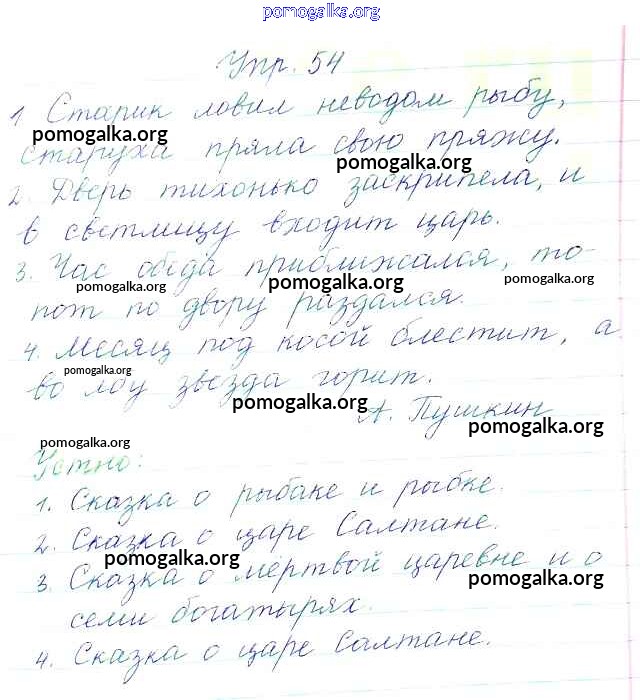 pomogalka.org
Упр. 54
1 Старик ловил неводом рыбу,
pomogalka.org
старуха пряла свою пряжу.
pomogalka.org
2. Дверь тихонько заскрипела, и
в светлицу входит царь.
3. Час обеда приближался, то-
pomogalka.org pomogalka.org pomogalka.org
пот по двору раздался.
4. Месяц под косой блестит, а
pomogalka.org
во лбу звезда горит.
pomogalka.org
А. Пушкин
pomogalka.org
pomogalka.org
Устно:
1. Сказка о рыбаке и рыбке.
2. Сказка о царе Салтане.
pomogalka.org
3. Сказка о мёртвой царевне и о
pomogalka.org
семи богатырях.
4. Сказка о царе Салтане.